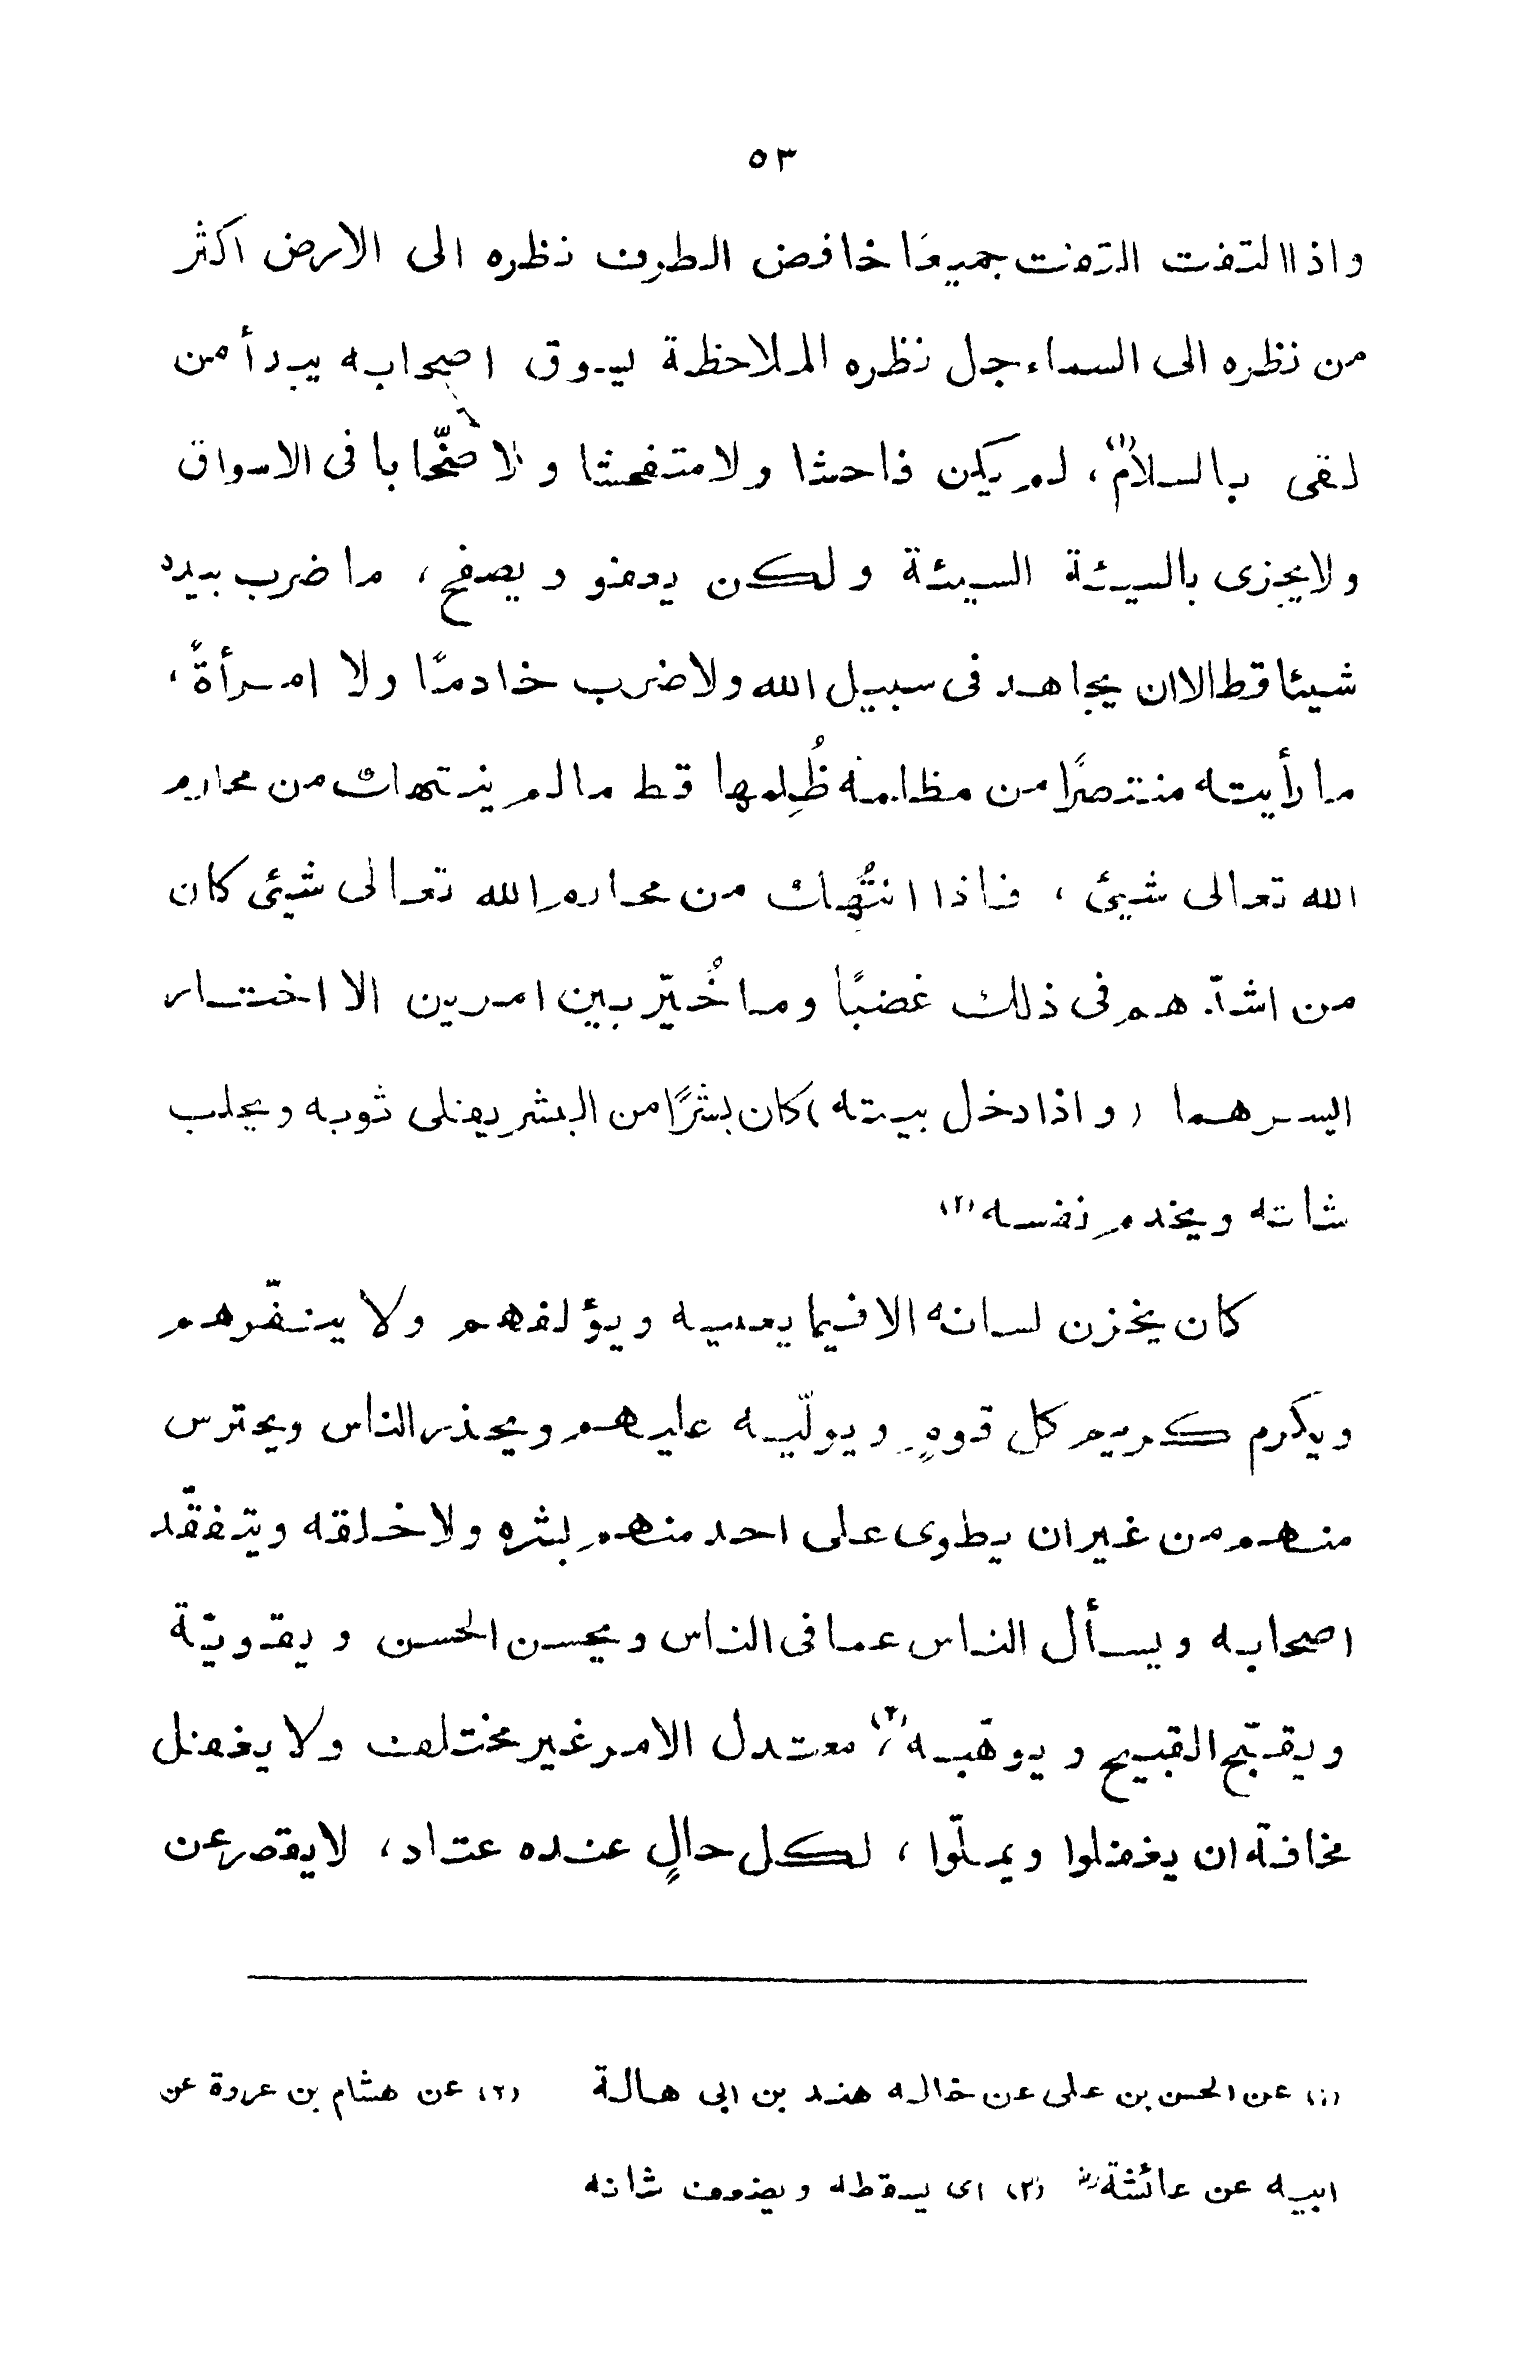 ٥٣
واذا التفت التفت جميعًا خافض الطرف نظره الى الارض اكثر
من نظره الى السماء جل نظره الملاحظة يسوق اصحابه يبدأ من
لقى بالسلام(١)، لم يكن فاحشا ولا متفحشا ولا صخّابا فى الاسواق
ولا يجزى بالسيئة السيئة ولكن يعفو ويصفح، ما ضرب بيده
شيئا قط الا ان يجاهد فى سبيل الله ولا ضرب خادمًا ولا امرأةً،
ما رأيته منتصرًا من مظلمة ظُلِمها قط ما لم ينتهك من محارم
الله تعالى شيئ، فاذا انتُهِك من محارم الله تعالى شيئ كان
من اشدّهم فى ذلك غضبًا وما خُيّر بين امرين الا اختار
ايسرهما (واذا دخل بيته) كان بشرًا من البشر يفلى ثوبه ويحلب
شاته ويخدم نفسه(٢)
كان يخزن لسانه الا فيما يعنيه ويؤلفهم ولا ينفّرهم
ويكرم كريم كل قومٍ ويولّيه عليهم ويحذر الناس ويحترس
منهم من غير ان يطوى على احد منهم بشره ولا خلقه ويتفقّد
اصحابه ويسأل الناس عما فى الناس ويحسن الحسن ويقويّة
ويقبّح القبيح ويوهّيه(٣)، معتدل الامر غير مختلف ولا يغفل
مخافة ان يغفلوا ويملّوا، لكل حالٍ عنده عتاد، لا يقصر عن
(١) عن الحسن بن على عن خاله هند بن ابى هالة (٢) عن هشام بن عروة عن
ابيه عن عائشة رض (٣) اى يسقطه ويضعف شانه